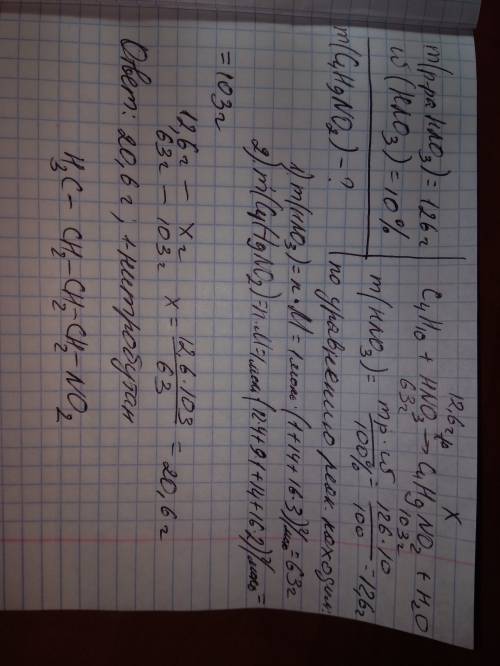 m(р-ра HNO₃) = 126 г
ω(HNO₃) = 10%
m(C₄H₉NO₂) - ?
12,6 гр X
C₄H₁₀ + HNO₃ → C₄H₉NO₂ + H₂O
63г 103г
m(HNO₃) = mр·ω / 100% = 126·10 / 100 = 12,6г
по уравнению реак. находим:
1) m(HNO₃) = n·M = 1моль·(1+14+16·3)г/моль = 63г
2) m(C₄H₉NO₂) = n·M = 1моль(12·4+9·1+14+16·2)г/моль =
= 103г
12,6г – xг
63г – 103г x = 12,6·103 / 63 = 20,6г
Ответ: 20,6г; + нитробутан
H₃C – CH₂ – CH₂ – CH₂ – NO₂